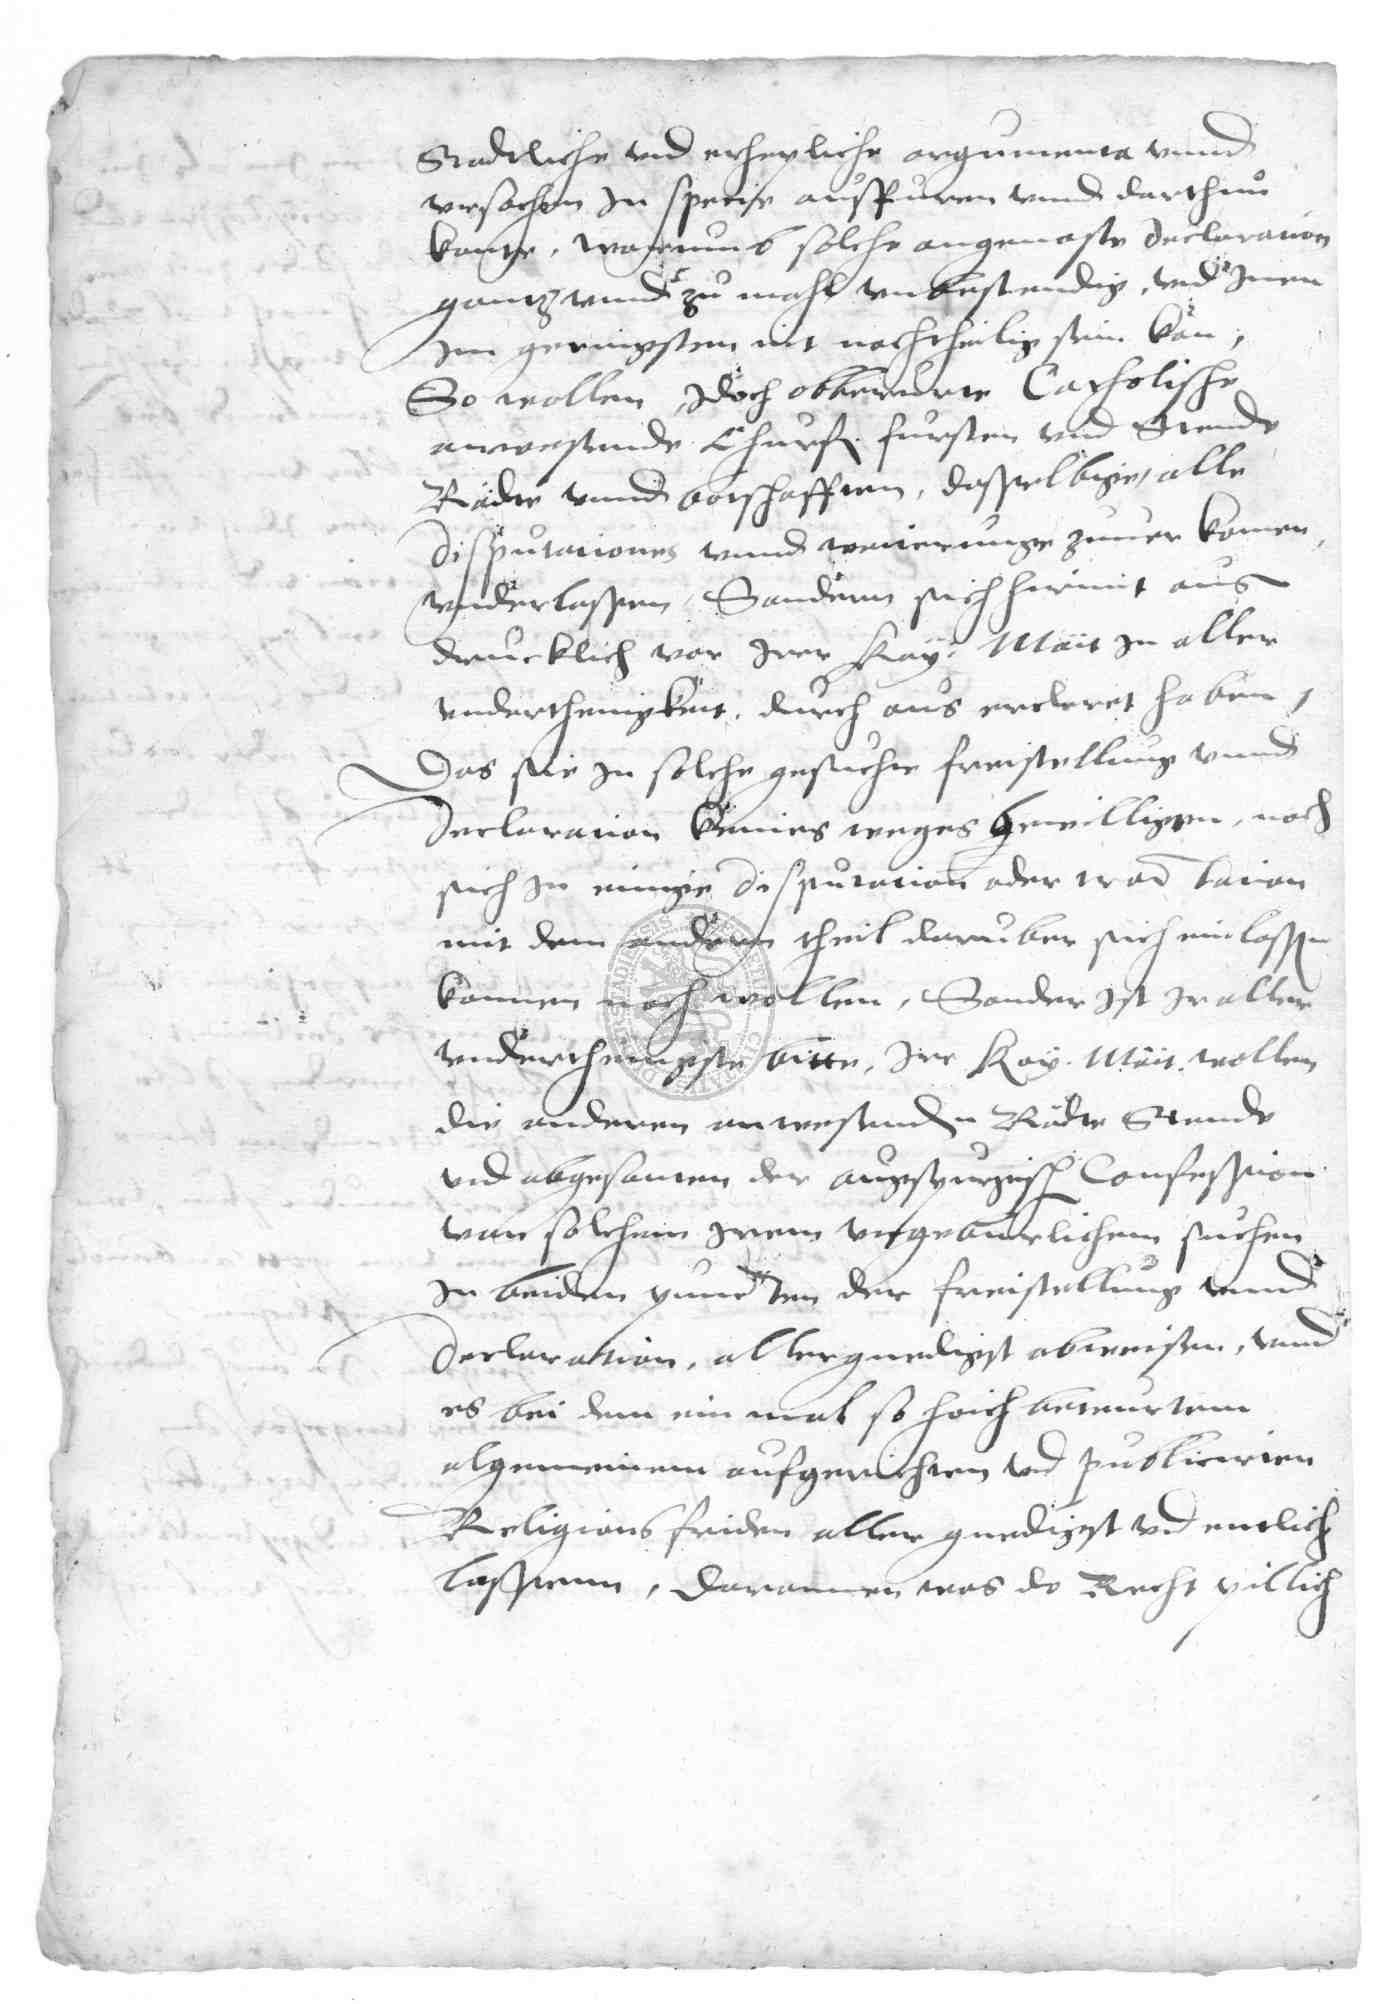 Stadtliche vnd erhepliche argumenta vnnd
vrsachen In specie ausfuren vnnd darthun
konte, warumb solche angemaste declaration
gantz vnnd zu mahl vnbestendig, vnd Inen
Im geringsten nit nachtheilig sein kan,
So wollen Idoch obberurte Catholische
anwesende Churf. fursten vnd Stende
Rädte vnnd botschafften, dasselbige, alle
disputationes vnnd weiterunge zuuerkomen,
vnderlassen, Sondern sich hiemit aus
drucklich vor Irer Kay: Mäit In aller
vnderthenigkeit, durch aus ercleret haben,
Das sie In solche gesuchte freistellung vnnd
declaration keines weges bewilligen, noch
sich In einige disputation oder tractation
mit dem andern theil daruber sich einlassen
konnen noch wollen, Sonder Ist Ir aller
vnderthenigste bitte, Ire Kay. Mäit. wollen
die anderen anwesenden Rädte Stende
vnd abgesanten der augspurgisch Confession
von solchem Irem vngeburlichem suchen
In beiden puncten der freistellung vnnd
declaration, allergnedigst abweisen, vnnd
es bei dem ein mal so hoich beteurtem
algemeinem aufgerichten vnd publicirten
Religions friden aller gnedigst vnd entlich
lassenn, Darannen was do Recht pillich